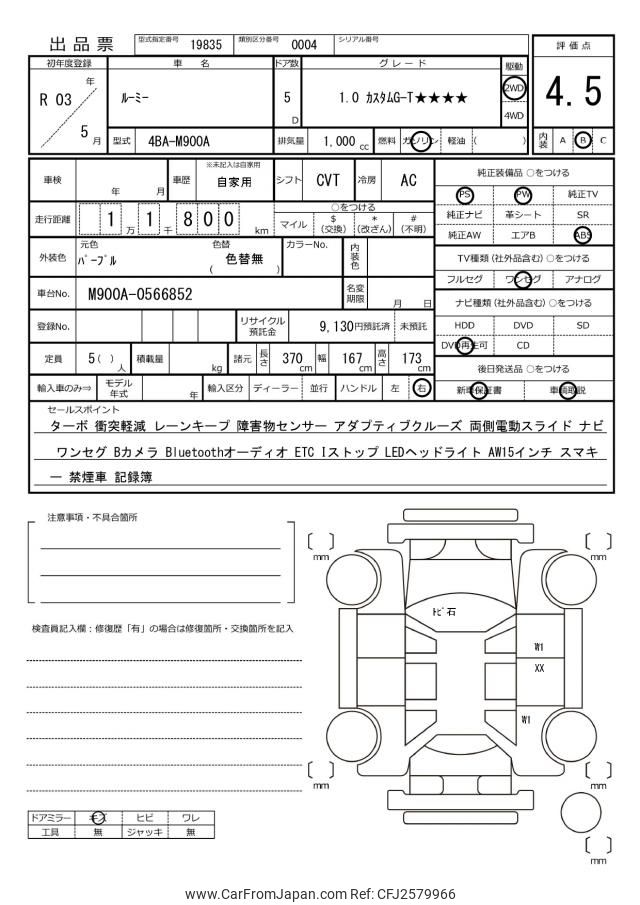 出品票
型式指定番号 19835 類別区分番号 0004 シリアル番号
評価点
4.5
内装 A B C
初年度登録 車名 ドア数 グレード 駆動
R 03 年 5 月
ルーミー
5 D
1.0 カスタムG-T★★★★
2WD
4WD
型式 4BA-M900A 排気量 1,000 cc 燃料 ガソリン 軽油 ( )
車検 年 月 車歴 ※未記入は自家用 自家用 シフト CVT 冷房 AC
走行距離 1 万 1 千 8 0 0 km
○をつける
マイル $(交換) *(改ざん) #(不明)
外装色 元色 パープル 色替 ( 色替無 ) カラーNo. 内装色
車台No. M900A-0566852 名変期限 月 日
登録No. リサイクル預託金 9,130円預託済 未預託
定員 5 ( ) 人 積載量 kg 諸元 長さ 370 cm 幅 167 cm 高さ 173 cm
輸入車のみ⇒ モデル年式 年 輸入区分 ディーラー 並行 ハンドル 左 右
純正装備品 ○をつける
PS PW 純正TV
純正ナビ 革シート SR
純正AW エアB ABS
TV種類(社外品含む) ○をつける
フルセグ ワンセグ アナログ
ナビ種類(社外品含む) ○をつける
HDD DVD SD
DVD再生可 CD
後日発送品 ○をつける
新車保証書 車輌取説
セールスポイント
ターボ 衝突軽減 レーンキープ 障害物センサー アダプティブクルーズ 両側電動スライド ナビ
ワンセグ Bカメラ Bluetoothオーディオ ETC Iストップ LEDヘッドライト AW15インチ スマキ
ー 禁煙車 記録簿
注意事項・不具合箇所
検査員記入欄：修復歴「有」の場合は修復箇所・交換箇所を記入
mm
mm
トビ石
W1
XX
W1
mm
mm
mm
ドアミラー キズ ヒビ ワレ
工具 無 ジャッキ 無
www.CarFromJapan.com Ref: CFJ2579966